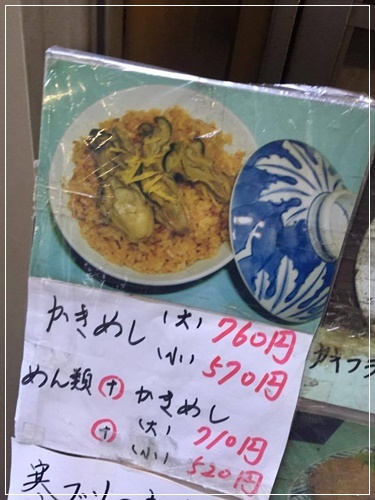 かきめし (大) 760円
(小) 570円
めん類 + かきめし
+ (大) 710円
(小) 520円
カキフラ
寒ブリ